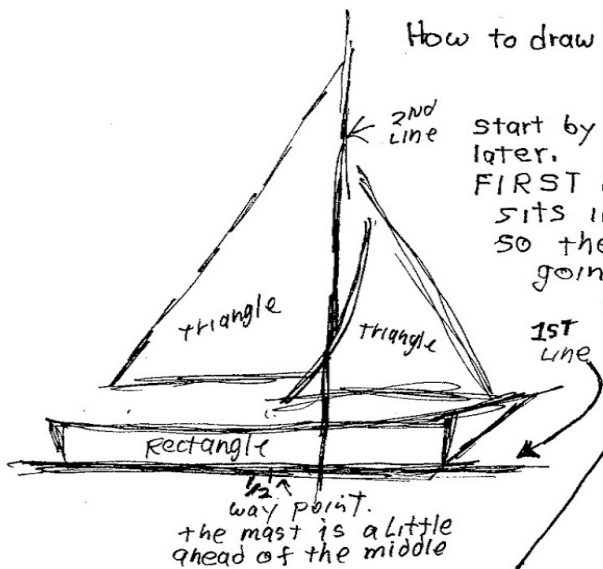 How to draw
2ND
Line
start by
later.
FIRST
sits
so the
goin
triangle
triangle
1ST
Line
Rectangle
1/2
way point.
the mast is a little
ahead of the middle